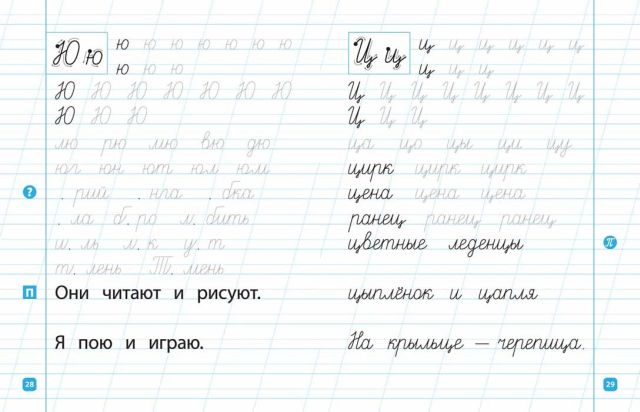 Ю ю ю ю ю ю ю ю ю
ю ю ю
Ю Ю Ю Ю Ю Ю Ю
Ю Ю Ю
лю рю лю вю дю
юг юн ют юл юм
? . рий . нга . бка
. ла б. ро л. бить
и. ль л. к у. т
т. лень Т. мень
П Они читают и рисуют.
Я пою и играю.
28
Ц ц ц ц ц ц ц ц
ц ц ц
Ц Ц Ц Ц Ц Ц Ц Ц
Ц Ц Ц
ца цо цы ци цу
цирк цирк цирк
цена цена цена
ранец ранец ранец
цветные леденцы П
цыплёнок и цапля
На крыльце — черепица.
29